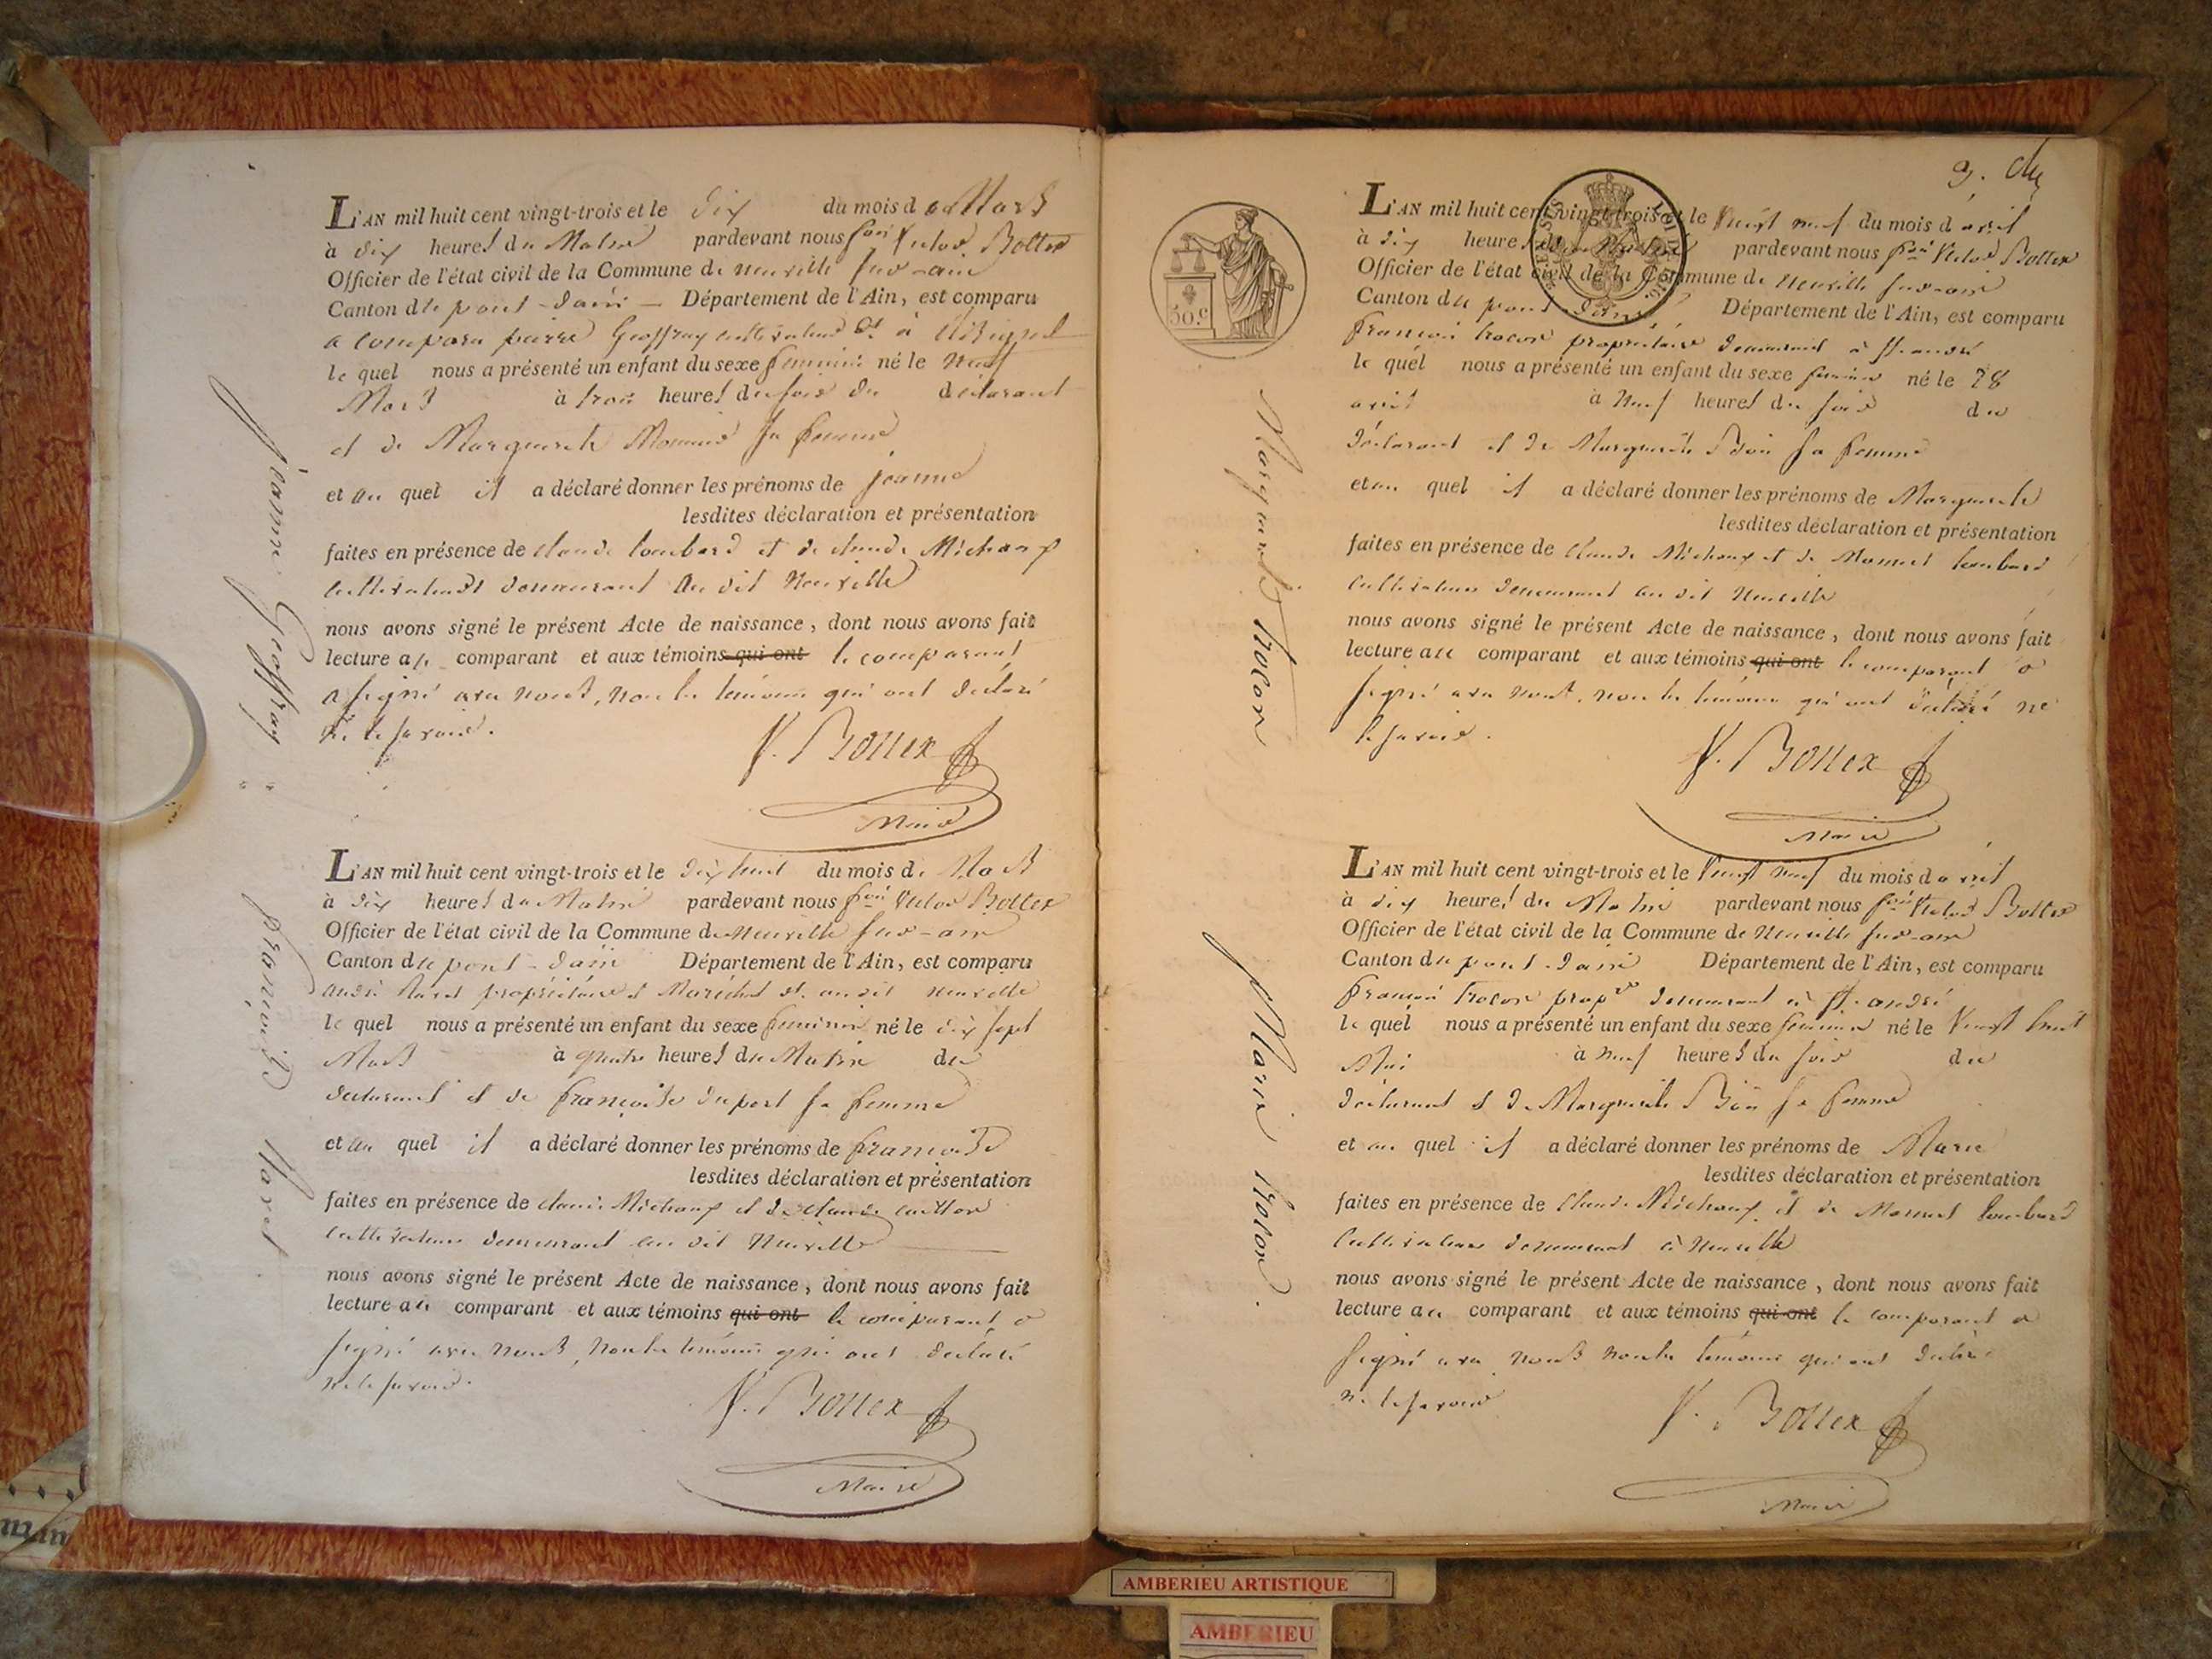 L'AN mil huit cent vingt-trois et le dix du mois de Mars
à dix heures du Matin pardevant nous fçois Victor Bottex
Officier de l'état civil de la Commune de neuville sur-ain
Canton de pont-d'ain — Département de l'Ain, est comparu
a comparu pierre Geoffray cultivateur dt à
le quel nous a présenté un enfant du sexe feminin né le neuf
Mars à trois heures du soir du declarant
et de Marguerite sa femme
et au quel il a déclaré donner les prénoms de jeanne
lesdites déclaration et présentation
faites en présence de claude lombard et de claude Michaux
cultivateurs demeurant au dit Neuville
nous avons signé le présent Acte de naissance, dont nous avons fait
lecture au comparant et aux témoins qui ont le comparant
a signé avec nous, non les temoins qui ont declaré
ne le savoir.
V. Bottex
Maire
jeanne Geoffray
L'AN mil huit cent vingt-trois et le dix huit du mois de Mars
à dix heures du Matin pardevant nous fçois Victor Bottex
Officier de l'état civil de la Commune de Neuville sur-ain
Canton de pont-d'ain Département de l'Ain, est comparu
andré propriétaire et Maréchal dt. au dit neuville
le quel nous a présenté un enfant du sexe feminin né le dix sept
Mars à quatre heures du Matin du
declarant et de françoise dupont sa femme
et au quel il a déclaré donner les prénoms de françoise
lesdites déclaration et présentation
faites en présence de claude Michaux et de claude
cultivateurs demeurant au dit Neuville
nous avons signé le présent Acte de naissance, dont nous avons fait
lecture au comparant et aux témoins qui ont le comparant a
signé avec nous, non les témoins qui ont declaré
ne le savoir.
V. Bottex
Maire
françoise
9.
30.c
L'AN mil huit cent vingt-trois et le Vingt neuf du mois d'avril
à dix heures du Matin pardevant nous fçois Victor Bottex
Officier de l'état civil de la Commune de Neuville sur-ain
Canton de pont-d'ain Département de l'Ain, est comparu
françois trocon propriétaire demeurant à St. andré
le quel nous a présenté un enfant du sexe feminin né le 28
avril à neuf heures du soir du
déclarant et de Marguerite Bon sa femme
et au quel il a déclaré donner les prénoms de Marguerite
lesdites déclaration et présentation
faites en présence de Claude Michaux et de Manuel lombard
cultivateurs demeurant au dit Neuville
nous avons signé le présent Acte de naissance, dont nous avons fait
lecture au comparant et aux témoins qui ont le comparant a
signé avec nous, non les témoins qui ont déclaré ne
le savoir.
V. Bottex
Maire
Marguerite trocon
L'AN mil huit cent vingt-trois et le Vingt neuf du mois d'avril
à dix heures du Matin pardevant nous fçois Victor Bottex
Officier de l'état civil de la Commune de Neuville sur-ain
Canton de pont-d'ain Département de l'Ain, est comparu
françois trocon propre demeurant à St. andré
le quel nous a présenté un enfant du sexe feminin né le Vingt huit
Mai à neuf heures du soir du
déclarant et de Marguerite Bon sa femme
et au quel il a déclaré donner les prénoms de Marie
lesdites déclaration et présentation
faites en présence de Claude Michaux et de Manuel lombard
Cultivateurs demeurant à Neuville
nous avons signé le présent Acte de naissance, dont nous avons fait
lecture au comparant et aux témoins qui ont le comparant a
signé avec nous non les témoins qui ont declaré
ne le savoir
V. Bottex
Maire
Marie trocon.
AMBERIEU ARTISTIQUE
AMBERIEU